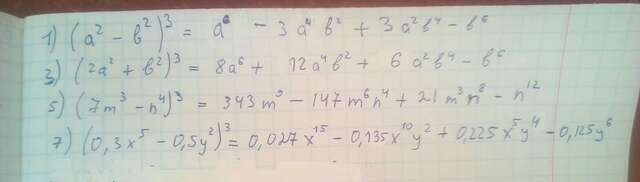 1) (a² - b²)³ = a⁶ - 3a⁴b² + 3a²b⁴ - b⁶
3) (2a² + b²)³ = 8a⁶ + 12a⁴b² + 6a²b⁴ - b⁶
5) (7m³ - n⁴)³ = 343m⁹ - 147m⁶n⁴ + 21m³n⁸ - n¹²
7) (0,3x⁵ - 0,5y²)³ = 0,027x¹⁵ - 0,135x¹⁰y² + 0,225x⁵y⁴ - 0,125y⁶